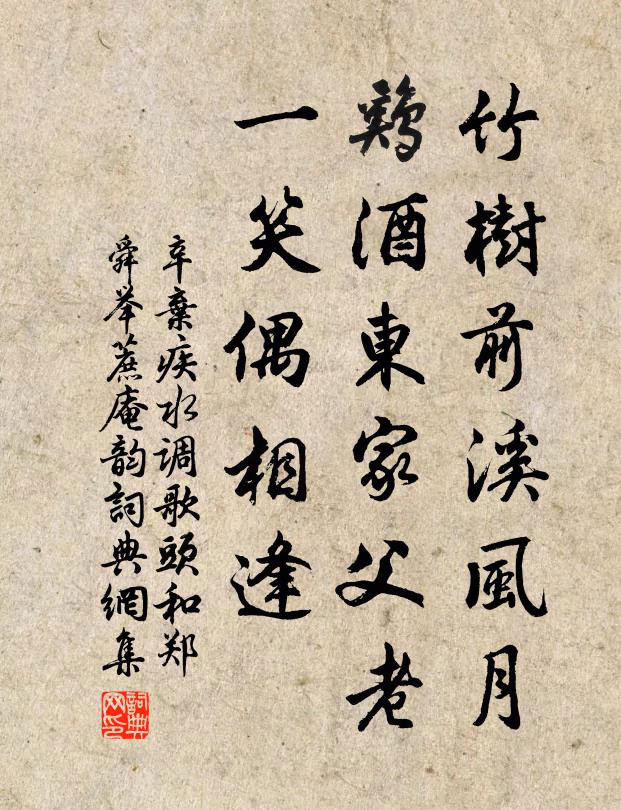 竹樹前溪風月
鷄酒東家父老
一笑偶相逢
辛棄疾水调歌頭和郑
舜举蔗庵韵詞典網集
詞典
网印